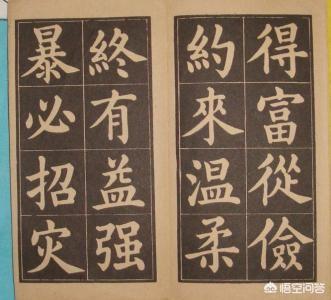 得富從儉
約來温柔
終有益强
暴必招灾
悟空问答